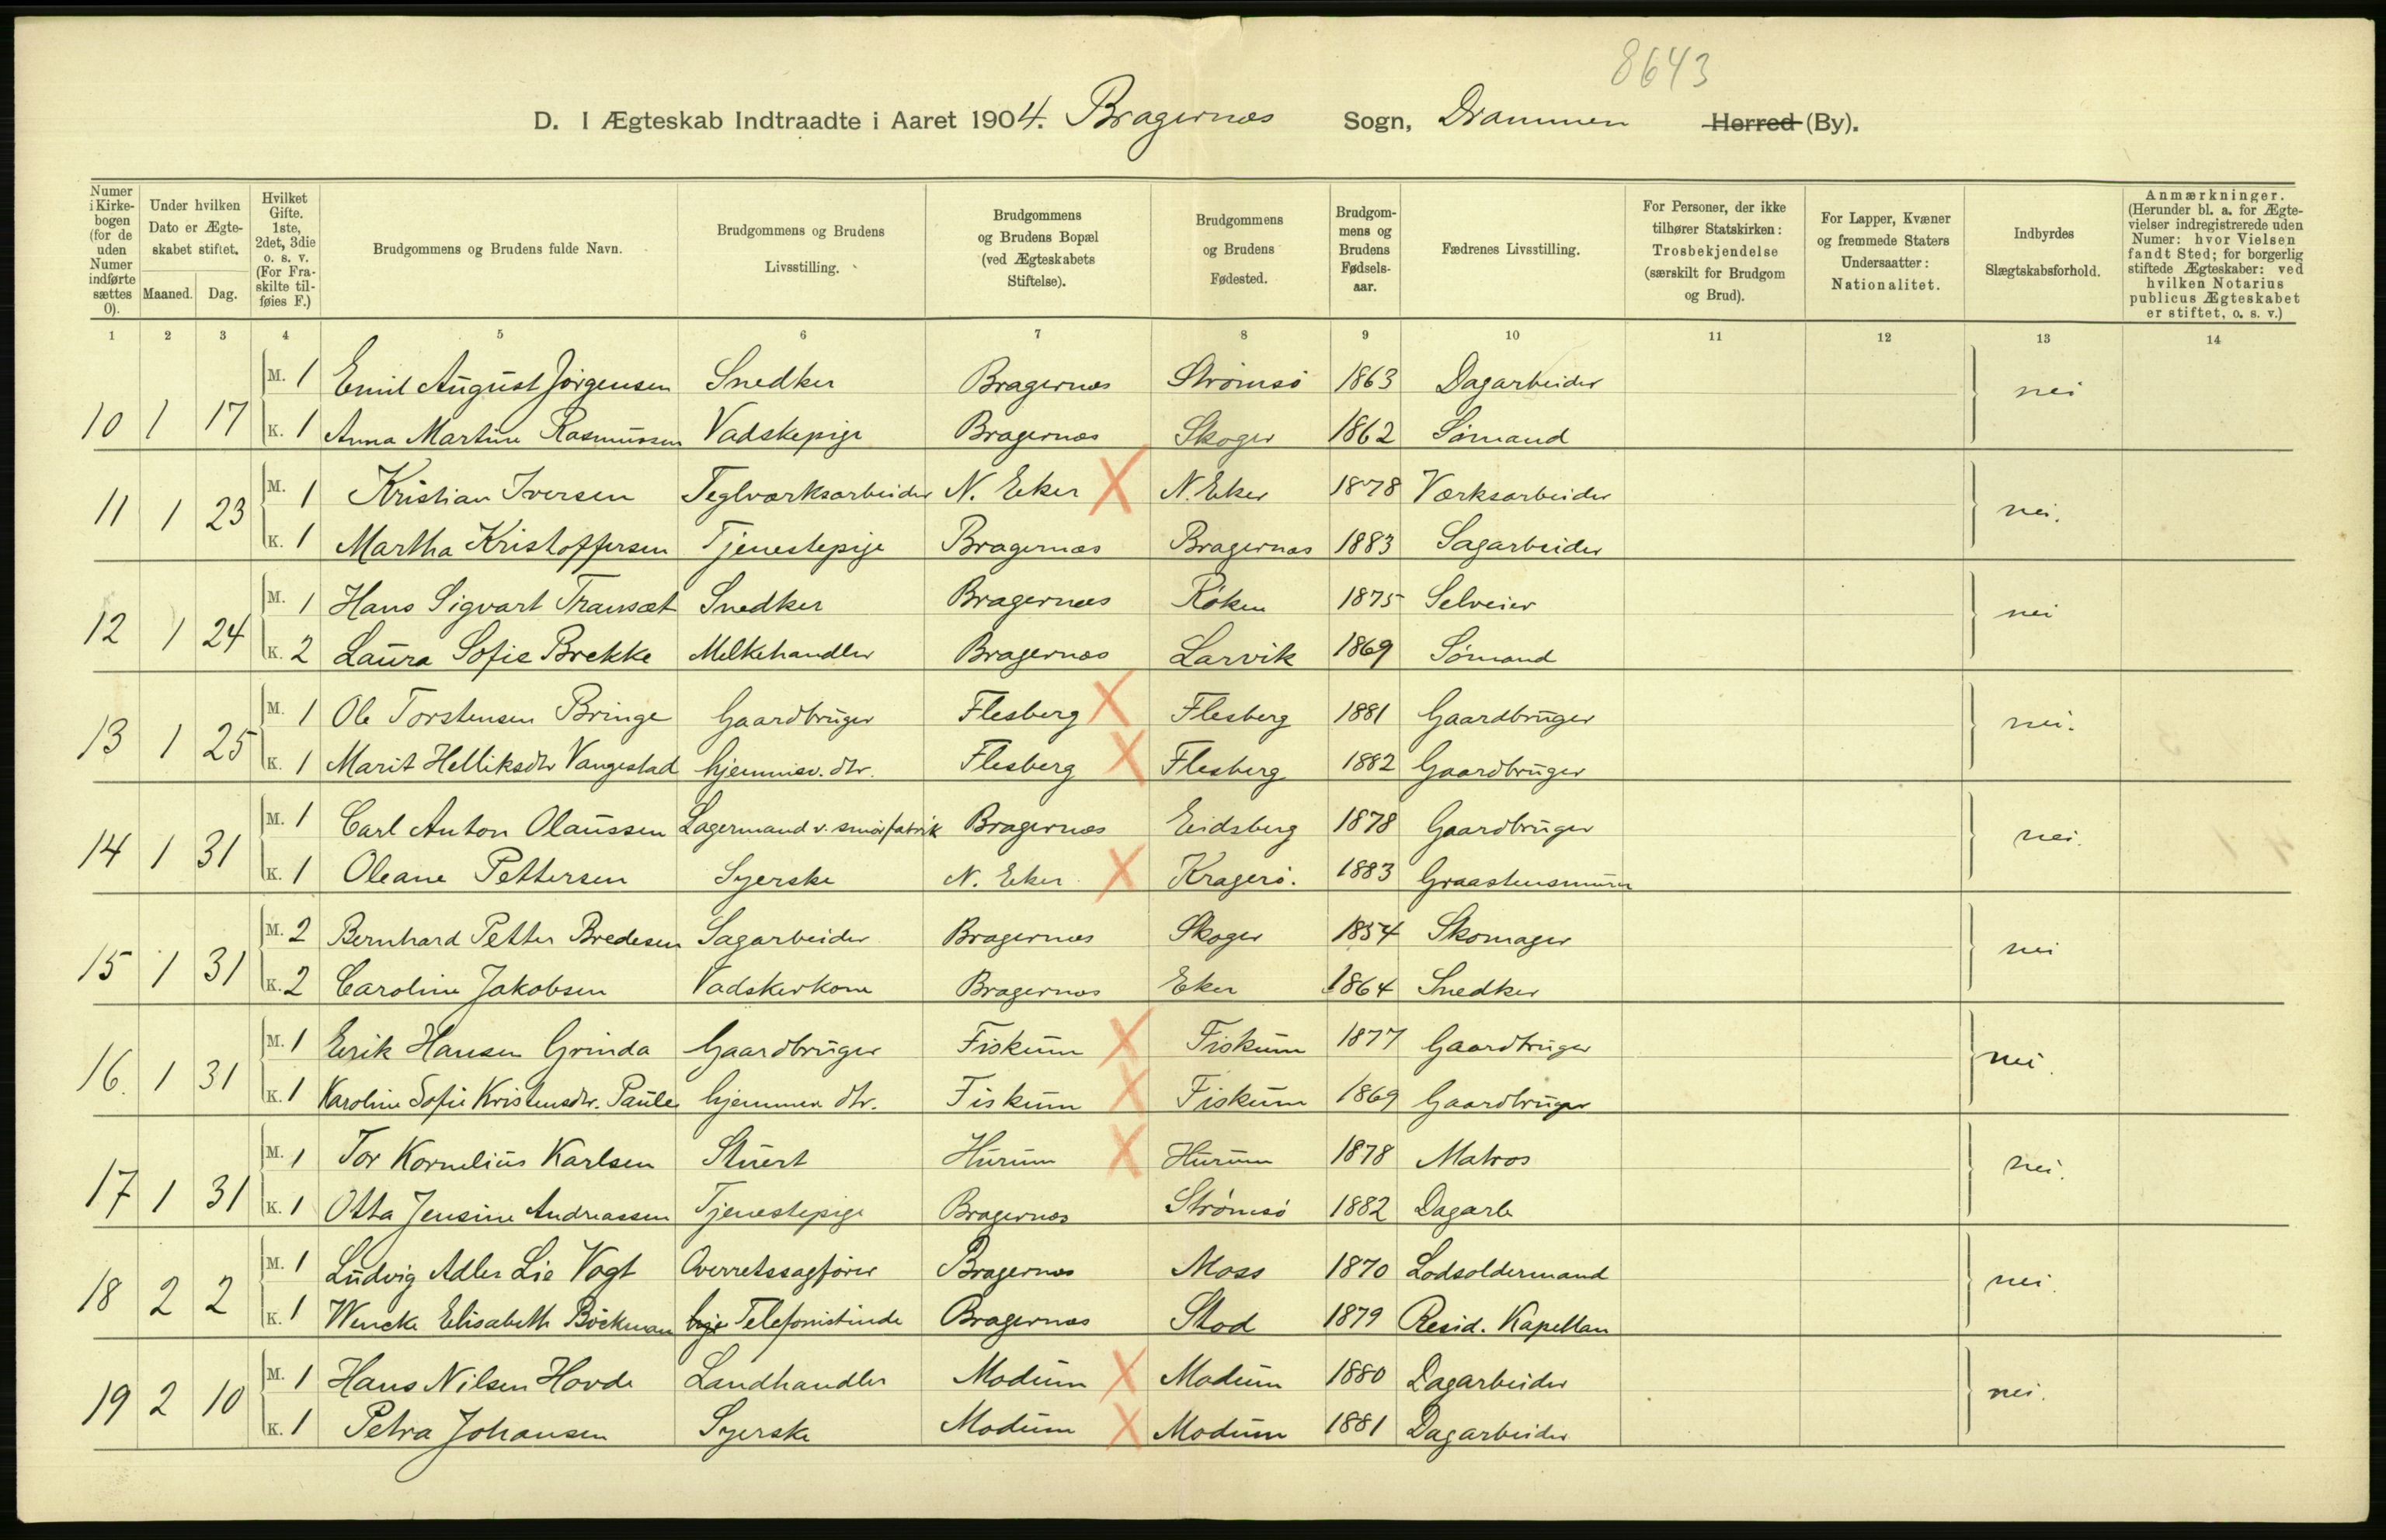 8643
D. I Ægteskab Indtraadte i Aaret 1904. Bragernæs Sogn, Drammen Herred (By).
Numer i Kirkebogen (for de uden Numer indførte sættes 0).
Under hvilken Dato er Ægteskabet stiftet. Maaned. Dag.
Hvilket Gifte. 1ste, 2det, 3die o. s. v. (For Fraskilte tilføies F.)
Brudgommens og Brudens fulde Navn.
Brudgommens og Brudens Livsstilling.
Brudgommens og Brudens Bopæl (ved Ægteskabets Stiftelse).
Brudgommens og Brudens Fødested.
Brudgommens og Brudens Fødselsaar.
Fædrenes Livsstilling.
For Personer, der ikke tilhører Statskirken: Trosbekjendelse (særskilt for Brudgom og Brud).
For Lapper, Kvæner og fremmede Staters Undersaatter: Nationalitet.
Indbyrdes Slægtskabsforhold.
Anmærkninger. (Herunder bl. a. for Ægtevielser indregistrerede uden Numer: hvor Vielsen fandt Sted; for borgerlig stiftede Ægteskaber: ved hvilken Notarius publicus Ægteskabet er stiftet, o. s. v.)
1 2 3 4 5 6 7 8 9 10 11 12 13 14
M. 1 Emil August Jörgensen Snedker Bragernæs Strömsö 1863 Dagarbeider nei
10 1 17 K. 1 Anna Martine Rasmussen Vadskepige Bragernæs Skoger 1862 Sömand
M. 1 Kristian Iversen Teglværksarbeider N. Eker X N. Eker 1878 Værksarbeider
11 1 23 nei.
K. 1 Martha Kristoffersen Tjenestepige Bragernæs Bragernæs 1883 Sagarbeider
M. 1 Hans Sigvart Transæt Snedker Bragernæs Röken 1875 Selveier
12 1 24 nei
K. 2 Laura Sofie Brekke Melkehandler Bragernæs Larvik 1869 Sömand
M. 1 Ole Torstensen Bringe Gaardbruger Flesberg X Flesberg 1881 Gaardbruger
13 1 25 nei.
K. 1 Marit Helliksdtr Vangestad hjemmev. dtr. Flesberg X Flesberg 1882 Gaardbruger
M. 1 Carl Anton Olaussen Lagermand v. smörfabrik Bragernæs Eidsberg 1878 Gaardbruger
14 1 31 nei.
K. 1 Oleane Pettersen Syerske N. Eker X Kragerö. 1883 Graastensmurer
M. 2 Bernhard Petter Bredesen Sagarbeider Bragernæs Skoger 1854 Skomager
15 1 31 nei
K. 2 Caroline Jakobsen Vadskerkone Bragernæs Eker 1864 Snedker
M. 1 Erik Hansen Grinda Gaardbruger Fiskum X Fiskum 1877 Gaardbruger
16. 1 31 nei.
K. 1 Karoline Sofie Kristensdtr. Paule hjemmev dtr. Fiskum X Fiskum 1869 Gaardbruger
M. 1 Tor Kornelius Karlsen Stuert Hurum X Hurum 1878 Matros
17 1 31 nei.
K. 1 Otta Jensine Andreassen Tjenestepige Bragernæs Strömsö 1882 Dagarb
M. 1 Ludvig Adler Lie Vogt Overretssagförer Bragernæs Moss 1870 Lodsoldermand
18 2 2 nei.
K. 1 Wencke Elisabeth Böckman Telefonistinde Bragernæs Stod 1879 Resid. Kapellan
M. 1 Hans Nilsen Hovde Landhandler Modum X Modum 1880 Dagarbeider
19 2 10 nei.
K. 1 Petra Johansen Syerske Modum X Modum 1881 Dagarbeider